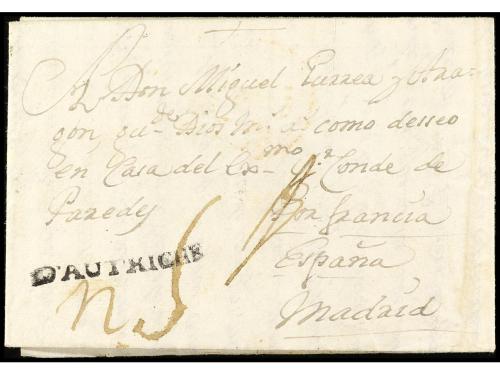 A Don Miguel Gurrea y Ara=
gon gu.de Dios m.s a.s como desseo
en Casa del Ex.mo S.r Conde de
Paredes Por francia
España
Madrid
D'AUTRICHE